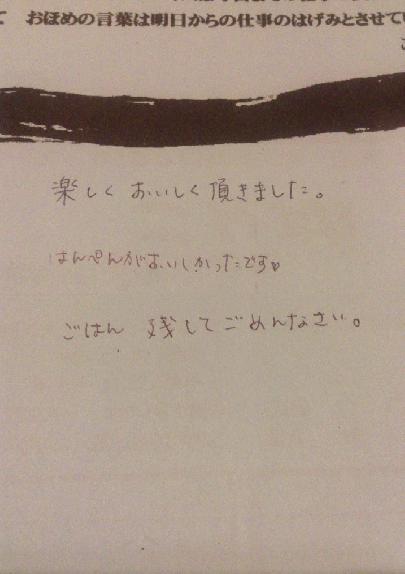 て おほめの言葉は明日からの仕事のはげみとさせてい
楽しく おいしく 頂きました。
はんぺんがおいしかったです♡
ごはん 残してごめんなさい。